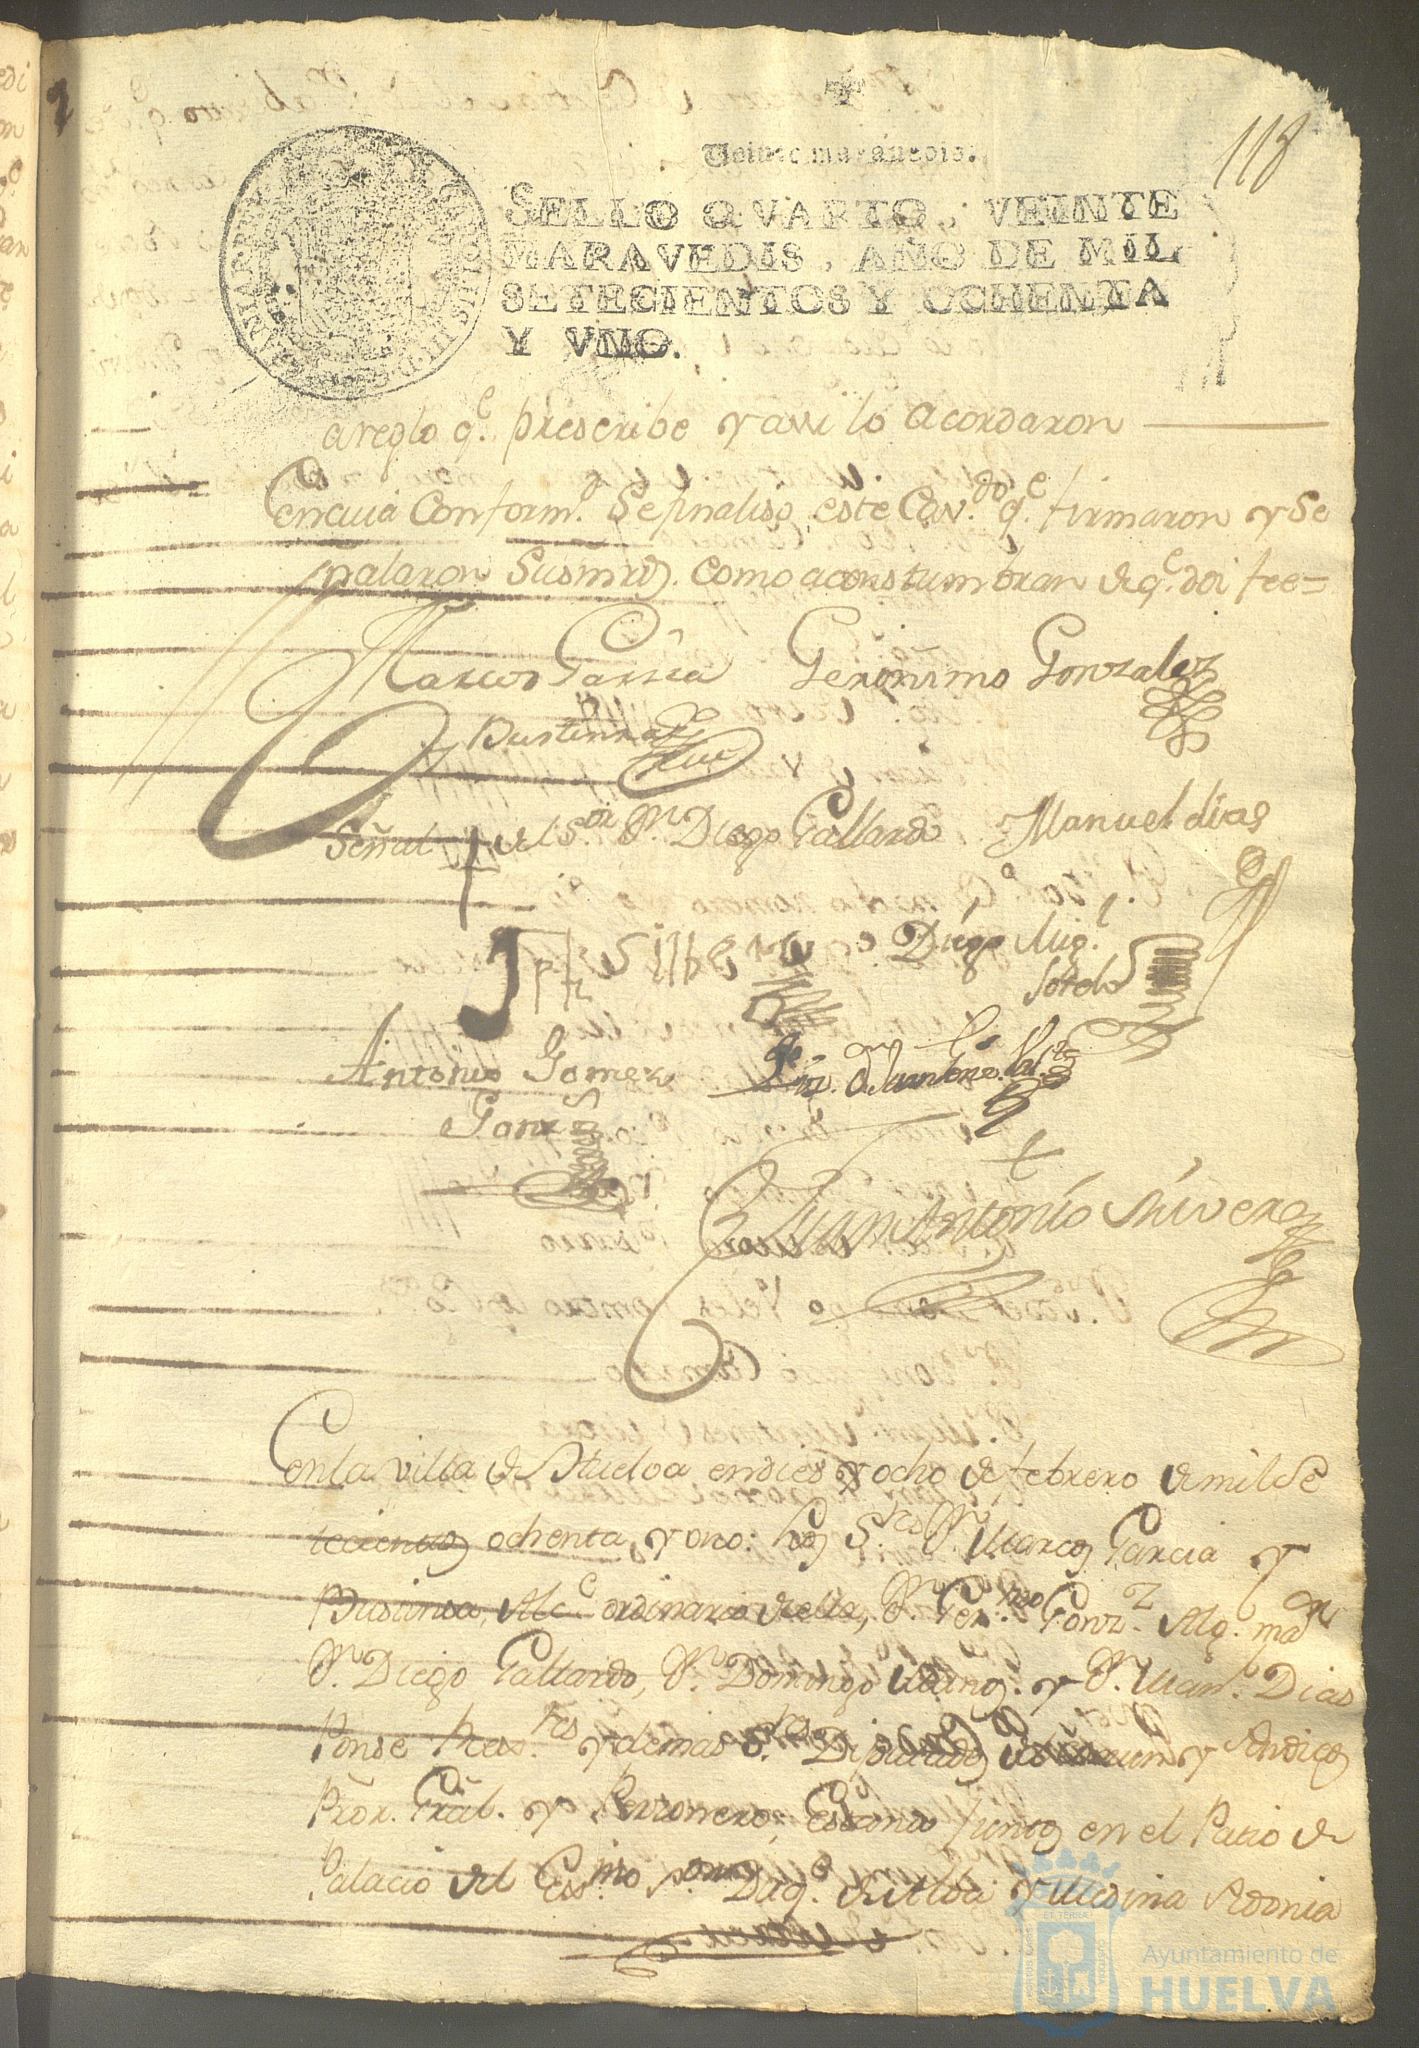 118
Veinte maravedis.
SELLO QVARTO, VEINTE
MARAVEDIS, AÑO DE MIL
SETECIENTOS Y OCHENTA
Y VNO.
areglo q.e prescribe y assi lo acordaron
Conform.d Se finaliso este Cav.do q.e firmaron y Se
ñalaron Susmrds. como acostumbran de q.e doi fee=
Marcos Garsia Geronimo Gonzalez
Bustinza
Señal del S.or D.n Diego Gallardo Manuel dias
Silbera Diego Mig.l
Sotelo
Antonio Gomez
Gonz
Juan Antonio Rivera
En la villa de Huelva en dies y ocho de febrero de mil Se
tecientos ochenta y uno: Los S.res D.n Marcos Garcia y
Bustinsa, Alc.e ordinario de ella, D.n Ger.mo Gonz.z Alg. ma.or
D.n Diego Gallardo, D.n Domingo y D.n Man.l Dias
Ponse y demas S.res Diputados del Comun y Sindicos
Pror. Gral. y Personero; Estando Juntos en el Patio de
Palacio del Exs.mo S.or Duq.e de Medina Sidonia
Ayuntamiento de
HUELVA